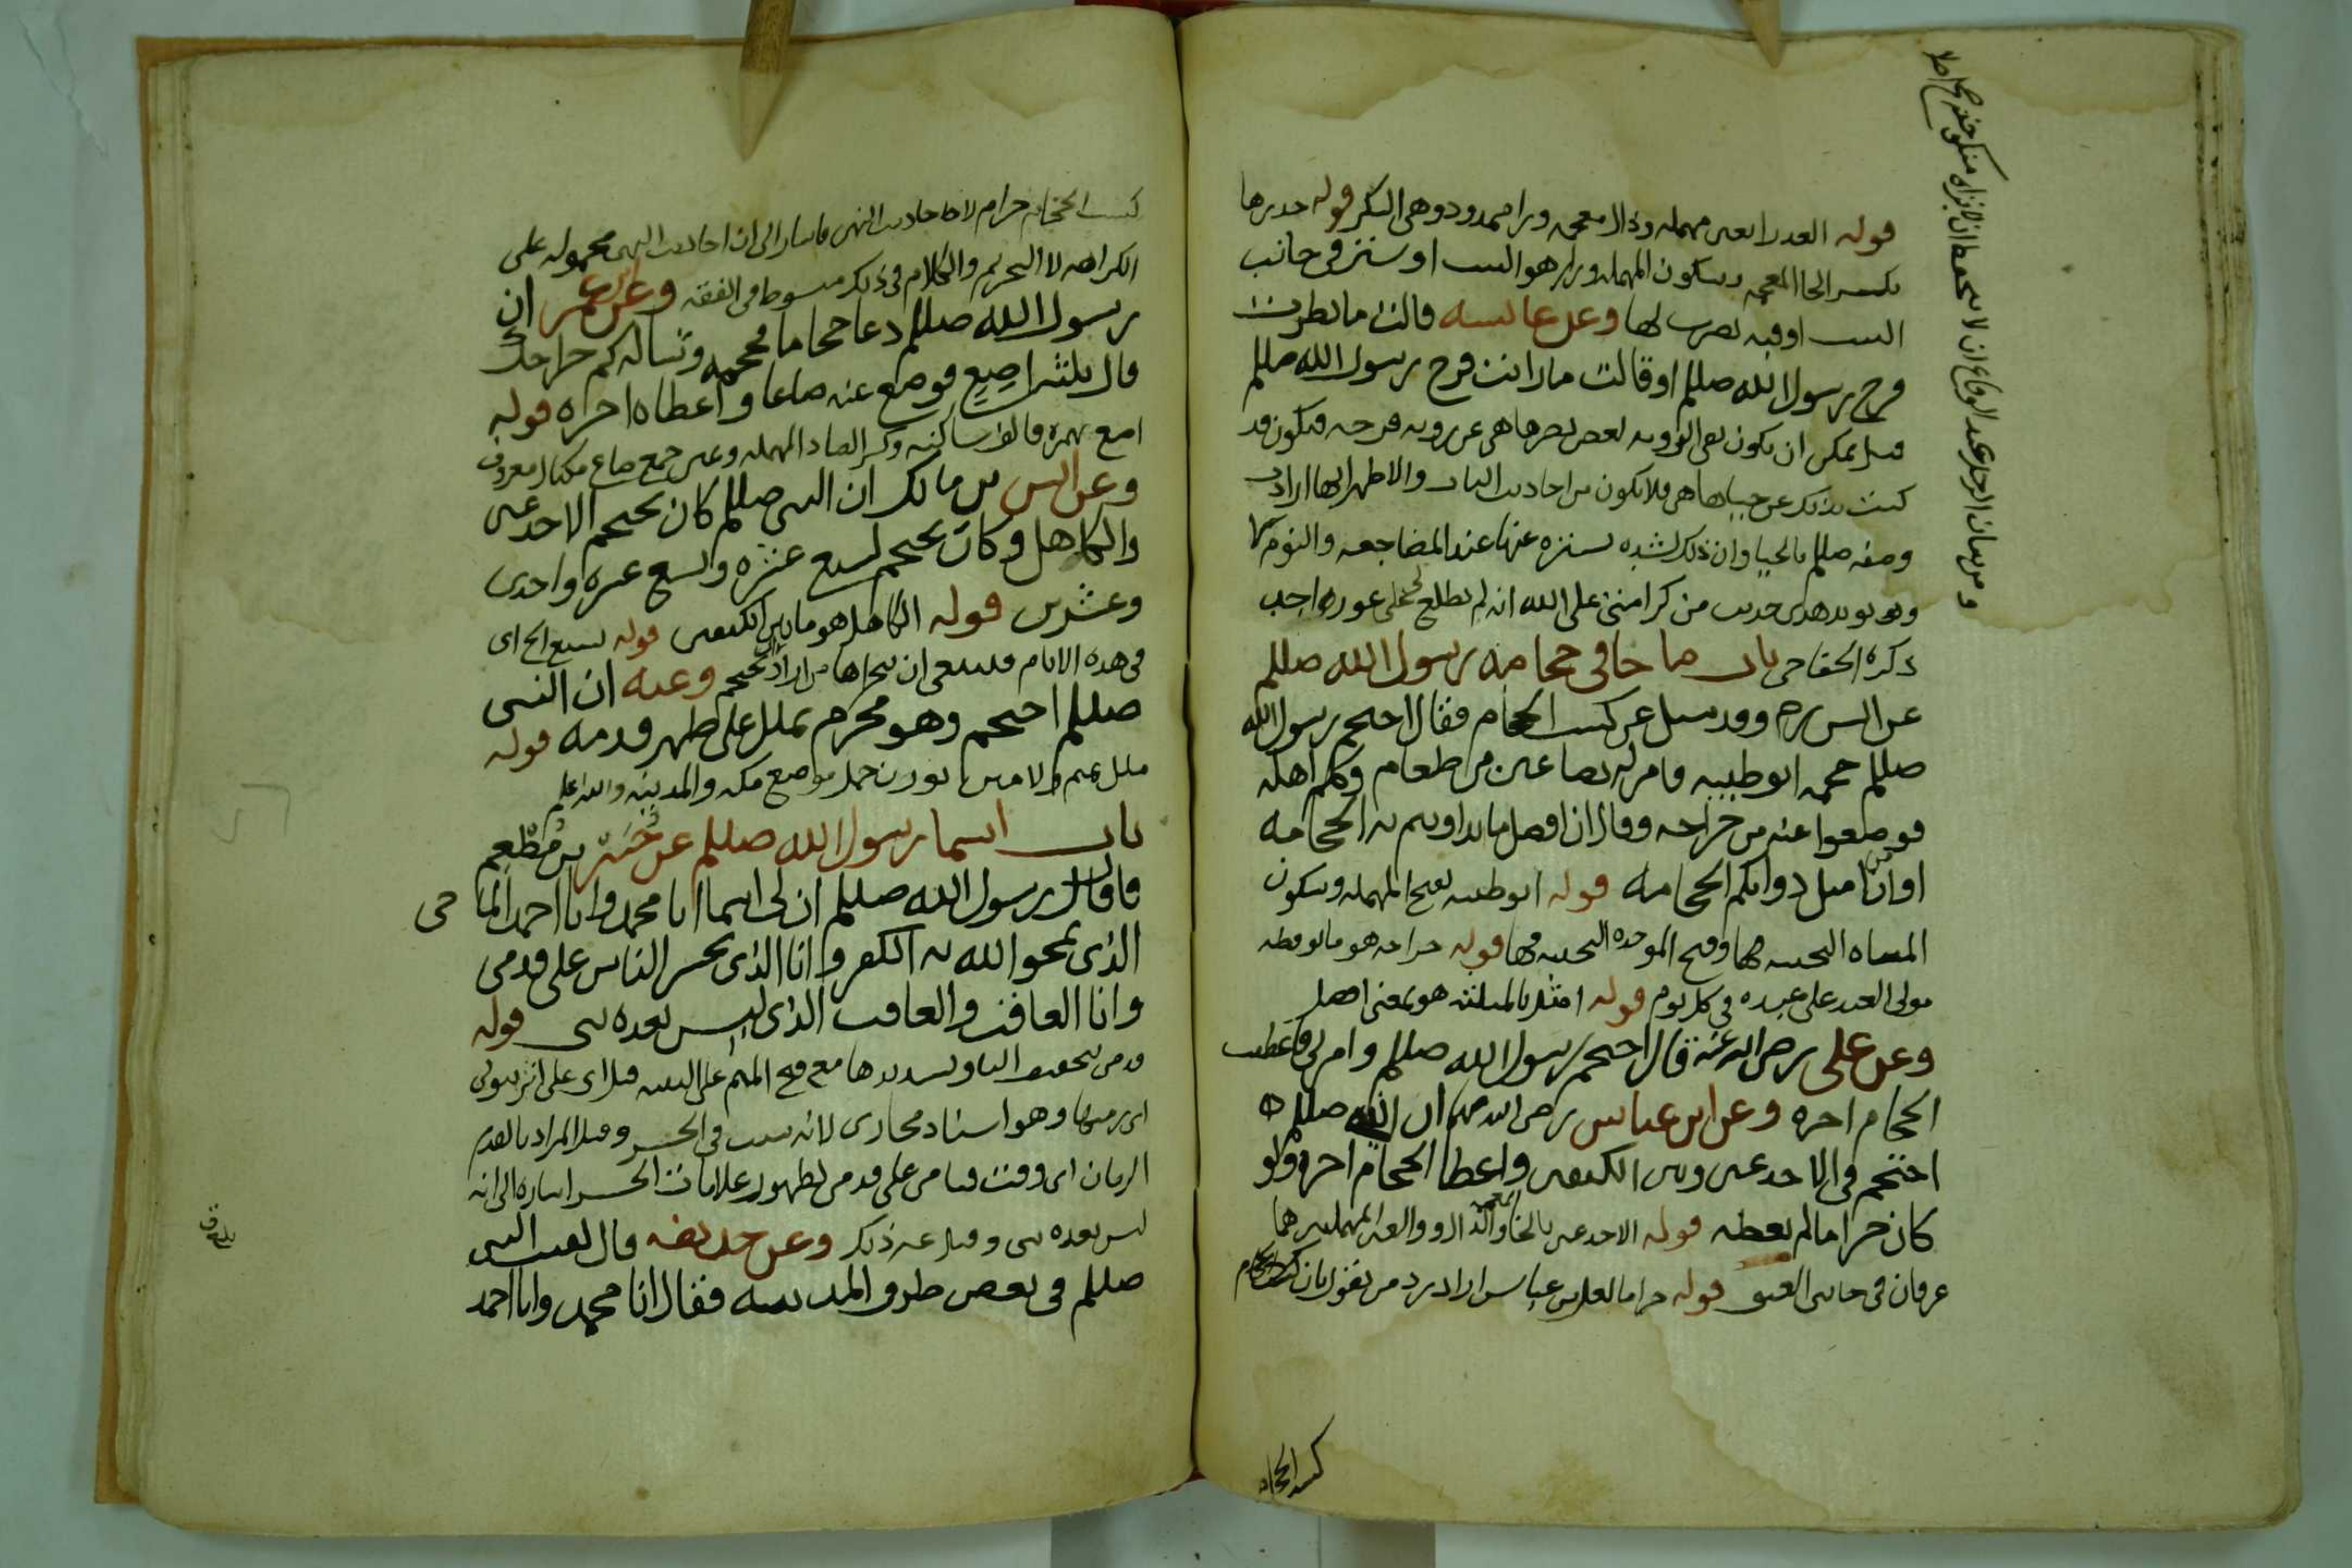 قوله العذرا بعين مهمله وذال معجمه ورا ممدود وهي البكر قوله خدرها
بكسر الخا المعجمه وسكون المهمله ورا هو البيت او ستر في جانب
البيت او قبه تضرب لها وعن عايشه قالت ما نظرت
فرج رسول الله صللم او قالت ما رايت فرج رسول الله صللم
قيل يمكن ان يكون نفي الرويه لغض بصرها هي عن رويه فرجه فيكون قد
كنت بذلك عن حيايها هي فلا يكون من احاديث الباب والاظهر انها ارادت
وصفه صللم بالحيا وان ذلك لشده تستره عنها عند المضاجعه والنوم
وقد يويد هذا حديث من كرامتي على الله انه لم يطلع على عورتي احد
ذكره الخفاجي باب ما جا في حجامه رسول الله صللم
عن انس رض وقد سيل عن كسب الحجام فقال احتجم رسول الله
صللم حجمه ابو طيبه فامر له بصاعين من طعام وكلم اهله
فوضعوا عنه من خراجه وقال ان افضل ما تداويتم به الحجامه
او ان من امثل دوايكم الحجامه قوله ابو طيبه بفتح المهمله وسكون
المثناه التحتيه وفتح الموحده التحتيه قوله خراجه هو ما يوظفه
مولى العبد على عبده في كل يوم قوله امثل بالمثلثه هو بمعنى افضل
وعن علي رضي الله عنه قال احتجم رسول الله صللم وامرني فاعطيت
الحجام اجره وعن ابن عباس رضي الله عنهما ان النبي صللم
احتجم في الاخدعين وبين الكتفين واعطا الحجام اجره ولو
كان حراما لم يعطه قوله الاخدعين بالخا المعجمه والدال والعين المهملتين هما
عرقان في جانبي العنق قوله حراما لعل ابن عباس اراد رد من يقول بان كسب الحجام
كسب الحجام
كسب الحجام حرام لاحاديث النهي فاشار الى ان احاديث النهي محموله على
الكراهه لا التحريم والكلام في ذلك مبسوط في الفقه وعن ابن عمر ان
رسول الله صللم دعا حجاما فحجمه وساله كم خراجك
قال ثلثه اصع فوضع عنه صاعا واعطاه اجره قوله
اصع بهمزه فالف ساكنه وكسر الصاد المهمله وعين جمع صاع مكيال معروف
وعن انس بن مالك ان النبي صللم كان يحتجم الاخدعين
والكاهل وكان يحتجم لسبع عشره وتسع عشره واحدى
وعشرين قوله الكاهل هو ما بين الكتفين قوله لسبع الخ اى
في هذه الايام فينبغي ان يتحراها من اراد ان يحتجم وعنه ان النبي
صللم احتجم وهو محرم بملل على ظهر قدمه قوله
ملل بميم ولامين بوزن حمل موضع مكه والمدينه والله اعلم
باب اسما رسول الله صللم عن جبير بن مطعم
قال قال رسول الله صللم ان لي اسما انا محمد وانا احمد الماحي
الذي يمحو الله به الكفر وانا الذي يحشر الناس على قدمي
وانا العاقب والعاقب الذي ليس بعده نبي قوله
قدمي بتخفيف اليا وتشديدها مع فتح الميم على التثنيه قيل اى على اثر نبوتي
اى زمنها وهو اسناد مجازي لانه سبب في الحشر وقيل المراد بالقدم
الزمان اى وقت قيامي على قدمي بظهور علامات الحشر اشاره الى انه
ليس بعده نبي وقيل غير ذلك وعن حذيفه قال لقيت النبي
صللم في بعض طرق المدينه فقال انا محمد وانا احمد